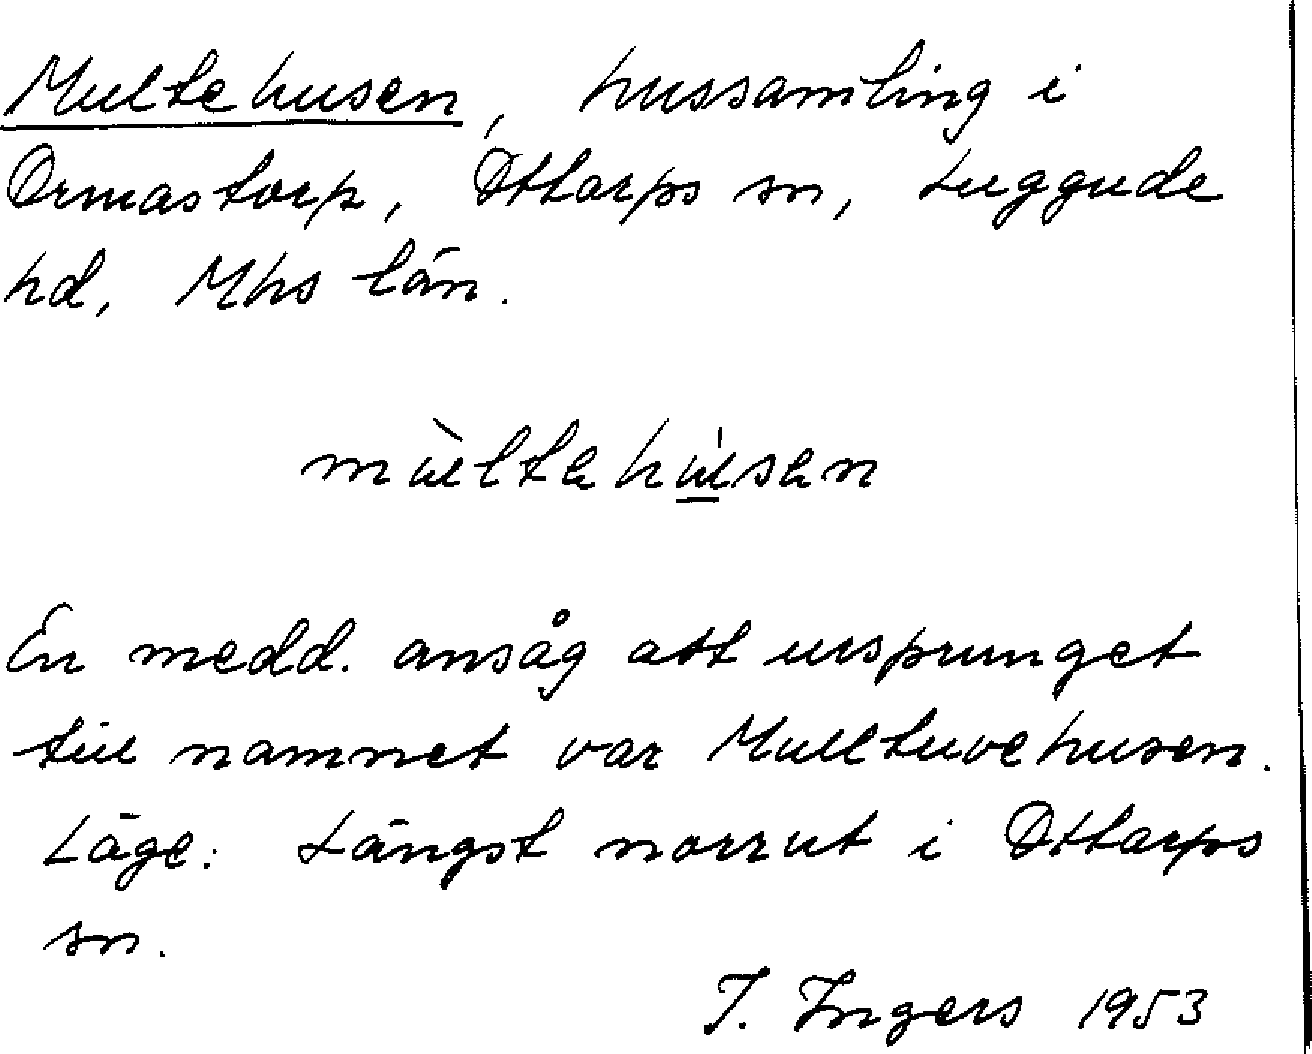 Multehusen, hussamling i
Ormastorp, Ottarps sn, Luggude
hd, Mhs län.
mùltehú̲sen
En medd. ansåg att ursprunget
till namnet var Mulltuvehusen.
Läge: Längst norrut i Ottarps
sn.
I. Ingers 1953